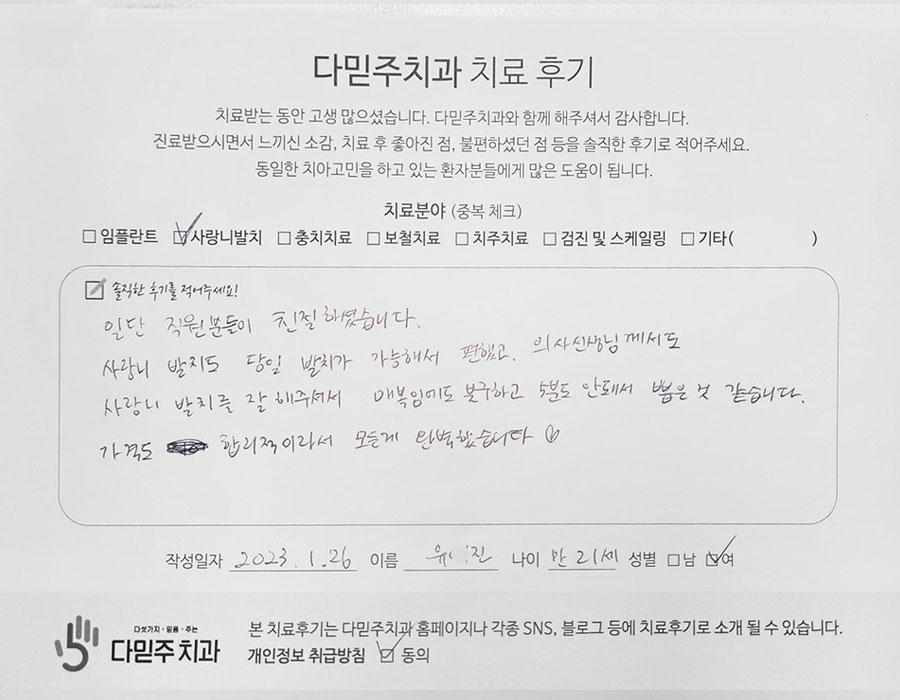 다믿주치과 치료 후기
치료받는 동안 고생 많으셨습니다. 다믿주치과와 함께 해주셔서 감사합니다.
진료받으시면서 느끼신 소감, 치료 후 좋아진 점, 불편하셨던 점 등을 솔직한 후기로 적어주세요.
동일한 치아고민을 하고 있는 환자분들에게 많은 도움이 됩니다.
치료분야 (중복 체크)
□ 임플란트 ☑ 사랑니발치 □ 충치치료 □ 보철치료 □ 치주치료 □ 검진 및 스케일링 □ 기타( )
솔직한 후기를 적어주세요!
일단 직원분들이 친절하셨습니다.
사랑니 발치도 당일 발치가 가능해서 편했고. 의사선생님께서도
사랑니 발치를 잘 해주셔서 매복임에도 불구하고 5분도 안돼서 뽑은 것 같습니다.
가격도 합리적이라서 모든게 완벽했습니다
작성일자 2023. 1. 26 이름 유 진 나이 만 21세 성별 □남 ☑여
다섯가지·믿음·주는
다믿주치과
본 치료후기는 다믿주치과 홈페이지나 각종 SNS, 블로그 등에 치료후기로 소개 될 수 있습니다.
개인정보 취급방침 ☑ 동의